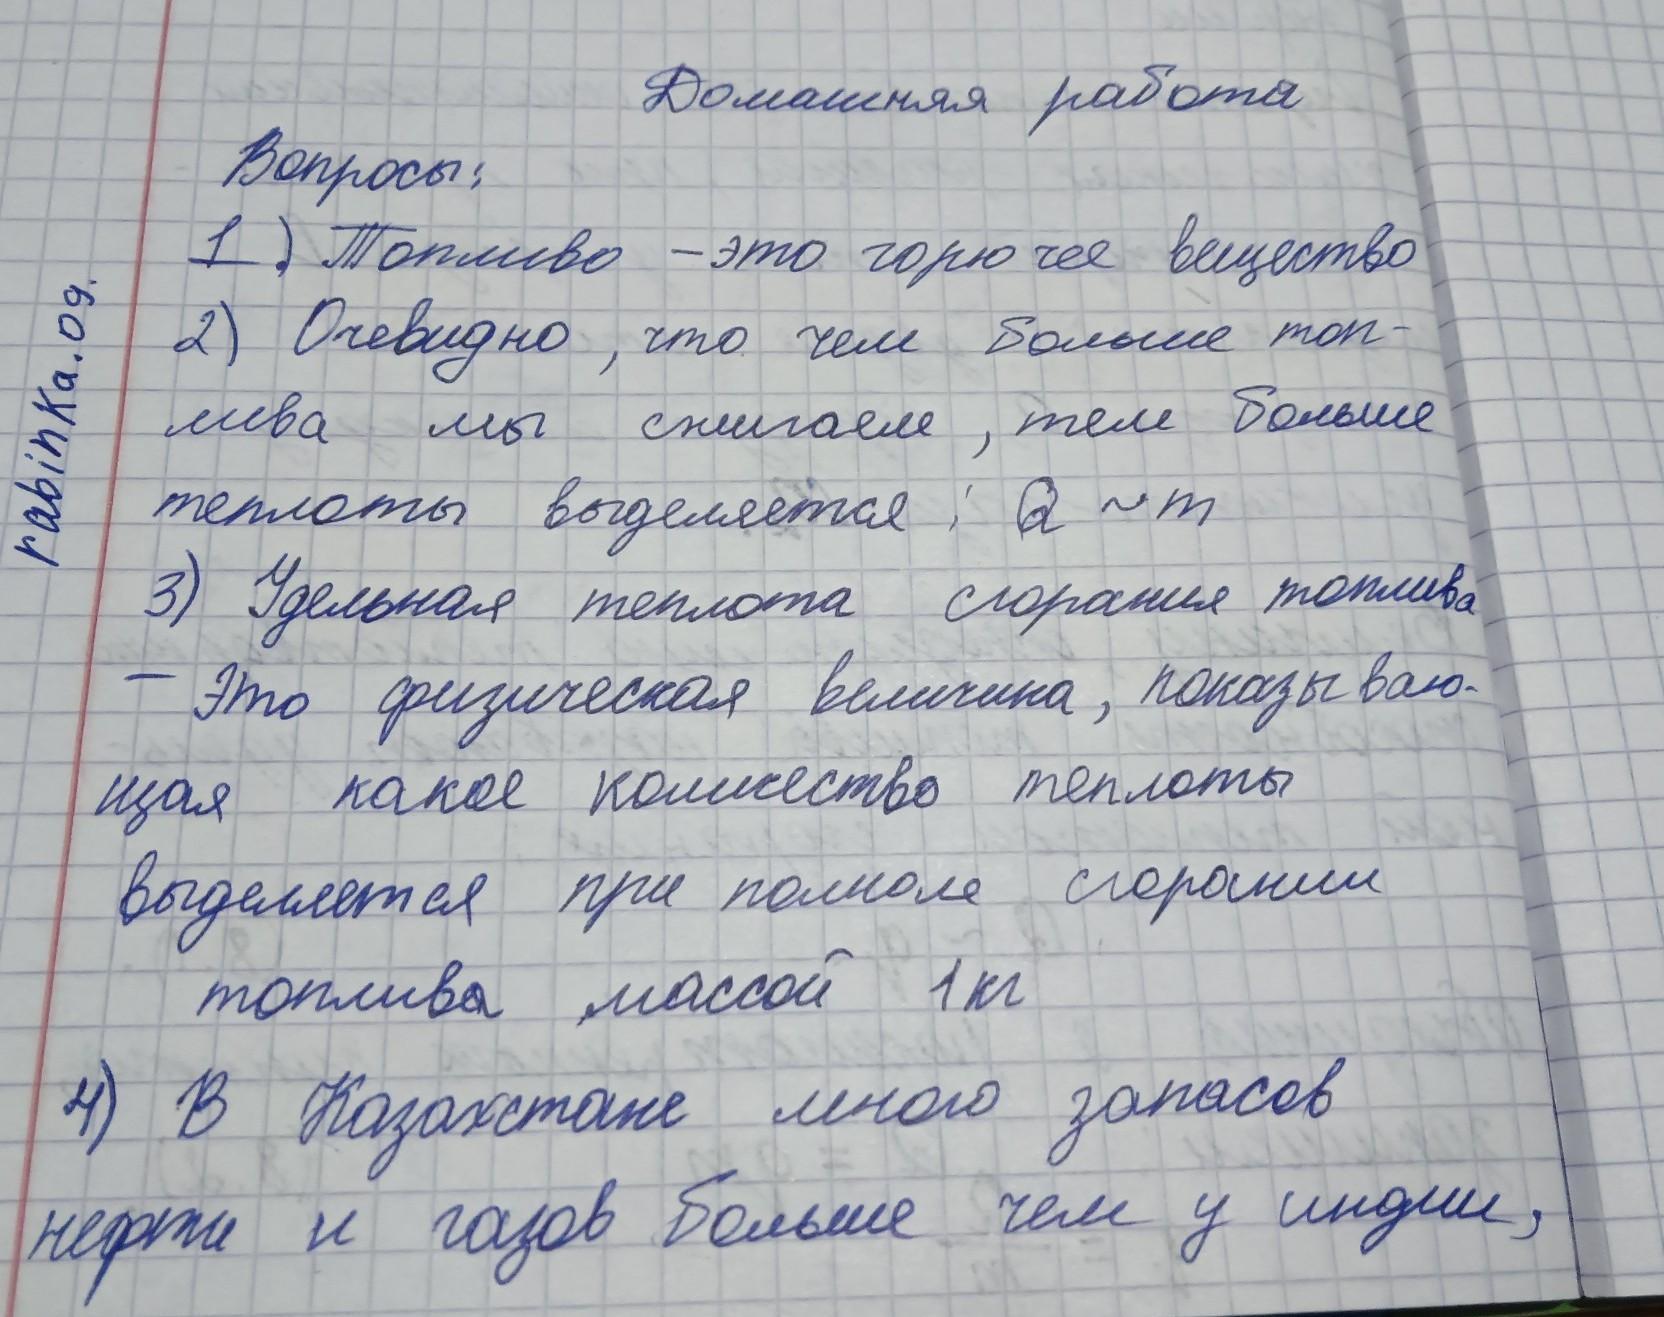 Домашняя работа
Вопросы:
1.) Топливо - это горючее вещество
2) Очевидно, что чем больше топ-
лива мы сжигаем, тем больше
теплоты выделяется: Q ~ m
3) Удельная теплота сгорания топлива
- Это физическая величина, показываю-
щая какое количество теплоты
выделяется при полном сгорании
топлива массой 1 кг
4) В Казахстане много запасов
нефти и газов больше чем у индии,
rabinka.09.